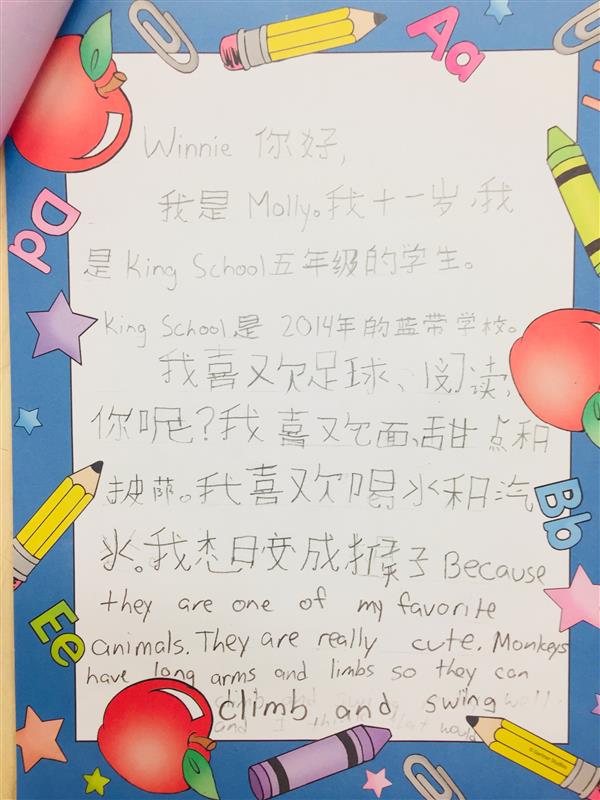 Aa
Winnie 你好,
我是 Molly。我十一岁,我
Dd
是 King School五年级的学生。
King School是 2014年的蓝带学校。
我喜欢足球、阅读,
你呢?我喜欢面、甜点和
披萨。我喜欢喝水和汽
Bb
水。我想日变成猴子 Because
they are one of my favorite
Ee
animals. They are really cute. Monkeys
have long arms and limbs so they can
climb and swing
© Gartner Studios